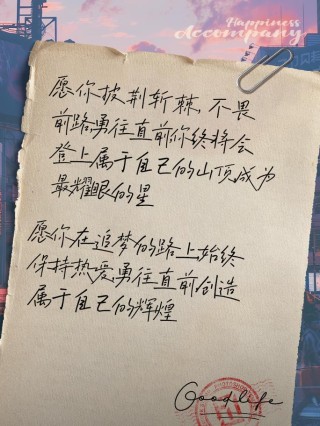 Happiness
Accompany
愿你披荆斩棘,不畏
前路勇往直前你终将会
登上属于自己的山顶成为
最耀眼的星
愿你在追梦的路上始终
保持热爱勇往直前创造
属于自己的辉煌
Goodlife